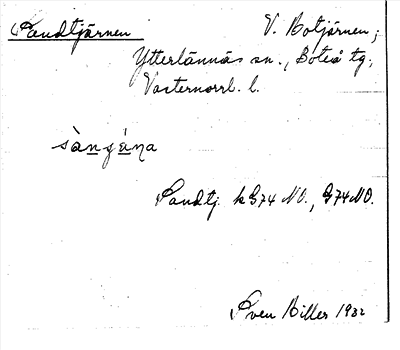 Sandtjärnen V. Botjärnen;
Ytterlännäs sn., Boteå tg.,
Västernorrl. l.
sànȷána
Sandtj. k G74 NO., G74 NO.
Sven Biller 1932